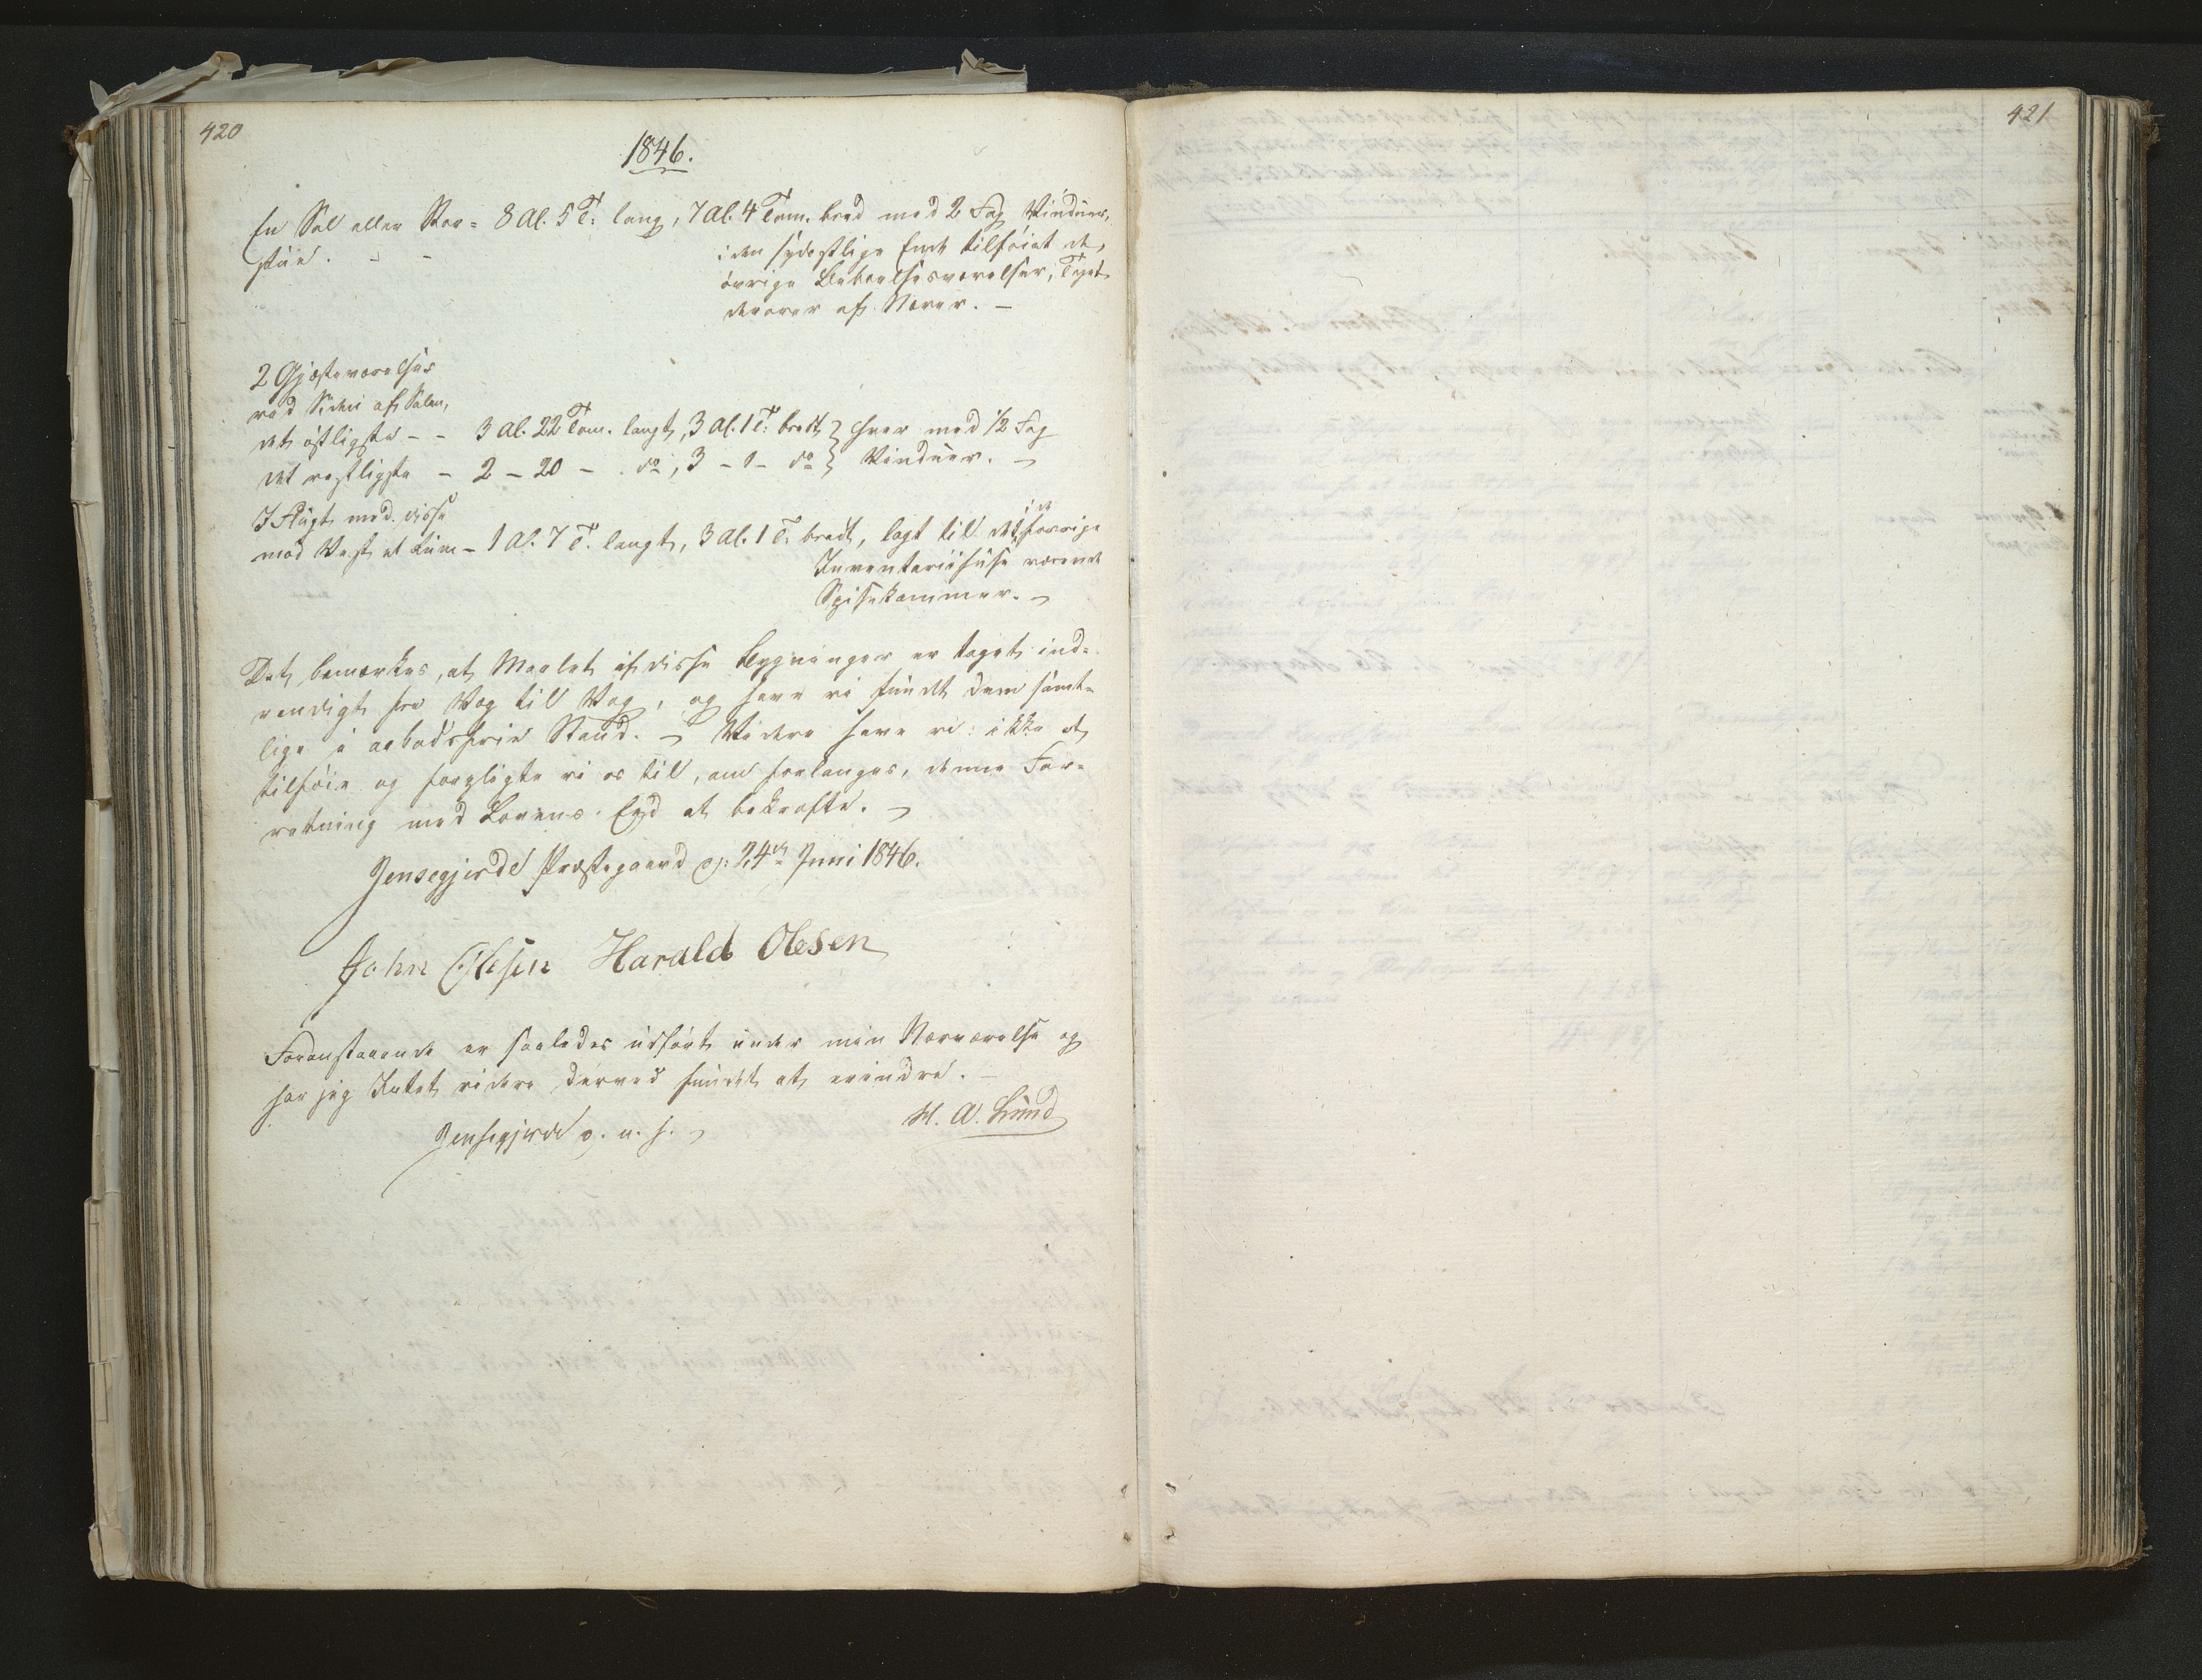 420
1846.
En Sal eller Stor= 8 Al. 5 T. lang, 7 Al. 4 Tom. bred med 2 Fag Vinduer,
stue. - - i den sydostlige Ende tilføiet de
øvrige Beboelsesværelser, Taget
derover af Næver. -
2 Gjæsteværelser
ved Siden af Salen,
det østligste - - 3 Al. 22 Tom. langt, 3 Al. 1 T. bredt } hver med 1/2 Fag
det vestligste - 2 - 20 - do, 3 - 1 - do } Vinduer. -
I Flugt med disse
mod Vest et Rum - 1 Al. 7 T. langt, 3 Al. 1 T. bredt, lagt til det i de forrige
Inventariihuse værende
Spisekammer. -
Det bemærkes, at Maalet af disse Bygninger er taget ind-
vendigt fra Væg til Væg, og have vi fundet dem samt-
lige i aabodsfrie Stand. - Videre have vi ikke at
tilføie og forpligte vi os til, om forlanges, denne For-
retning med Lovens Eed at bekræfte. -
Jensegjerde Præstegaard d. 24de Juni 1846.
John Olesen Harald Olesen
Foranstaaende er saaledes udført under min Nærværelse og
har jeg Intet videre derved fundet at erindre. -
Jensegjerde d. u. s. - M. A. Lund
421